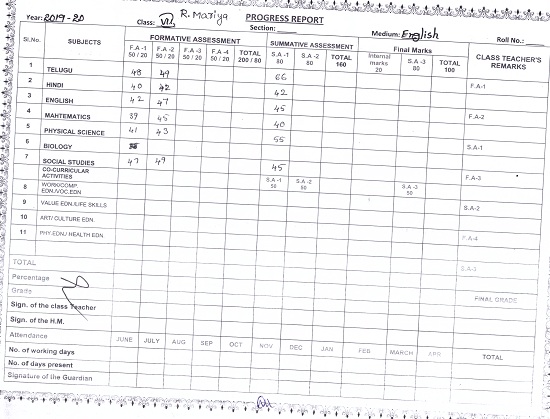 R. Maziya
Year: 2019-20 Class: VII PROGRESS REPORT Section: Medium: English Roll No.:
Sl.No. SUBJECTS FORMATIVE ASSESSMENT SUMMATIVE ASSESSMENT Final Marks CLASS TEACHER'S REMARKS
F.A -1 50 / 20 F.A -2 50 / 20 F.A -3 50 / 20 F.A -4 50 / 20 TOTAL 200 / 80 S.A -1 80 S.A -2 80 TOTAL 160 Internal marks 20 S.A -3 80 TOTAL 100
1 TELUGU 48 49 66 F.A-1
2 HINDI 40 42 42
3 ENGLISH 42 47 45 F.A-2
4 MAHTEMATICS 39 45 40
5 PHYSICAL SCIENCE 41 43 55 S.A-1
6 BIOLOGY
7 SOCIAL STUDIES 47 49 45 F.A-3
CO-CURRICULAR ACTIVITIES S.A -1 50 S.A -2 50 S.A -3 50
8 WORK/COMP. EDN./VOC.EDN.
9 VALUE EDN./LIFE SKILLS S.A-2
10 ART/ CULTURE EDN.
11 PHY.EDN./ HEALTH EDN. F.A-4
TOTAL S.A-3
Percentage
Grade FINAL GRADE
Sign. of the class Teacher
Sign. of the H.M.
Attendance JUNE JULY AUG SEP OCT NOV DEC JAN FEB MARCH APR TOTAL
No. of working days
No. of days present
Signature of the Guardian